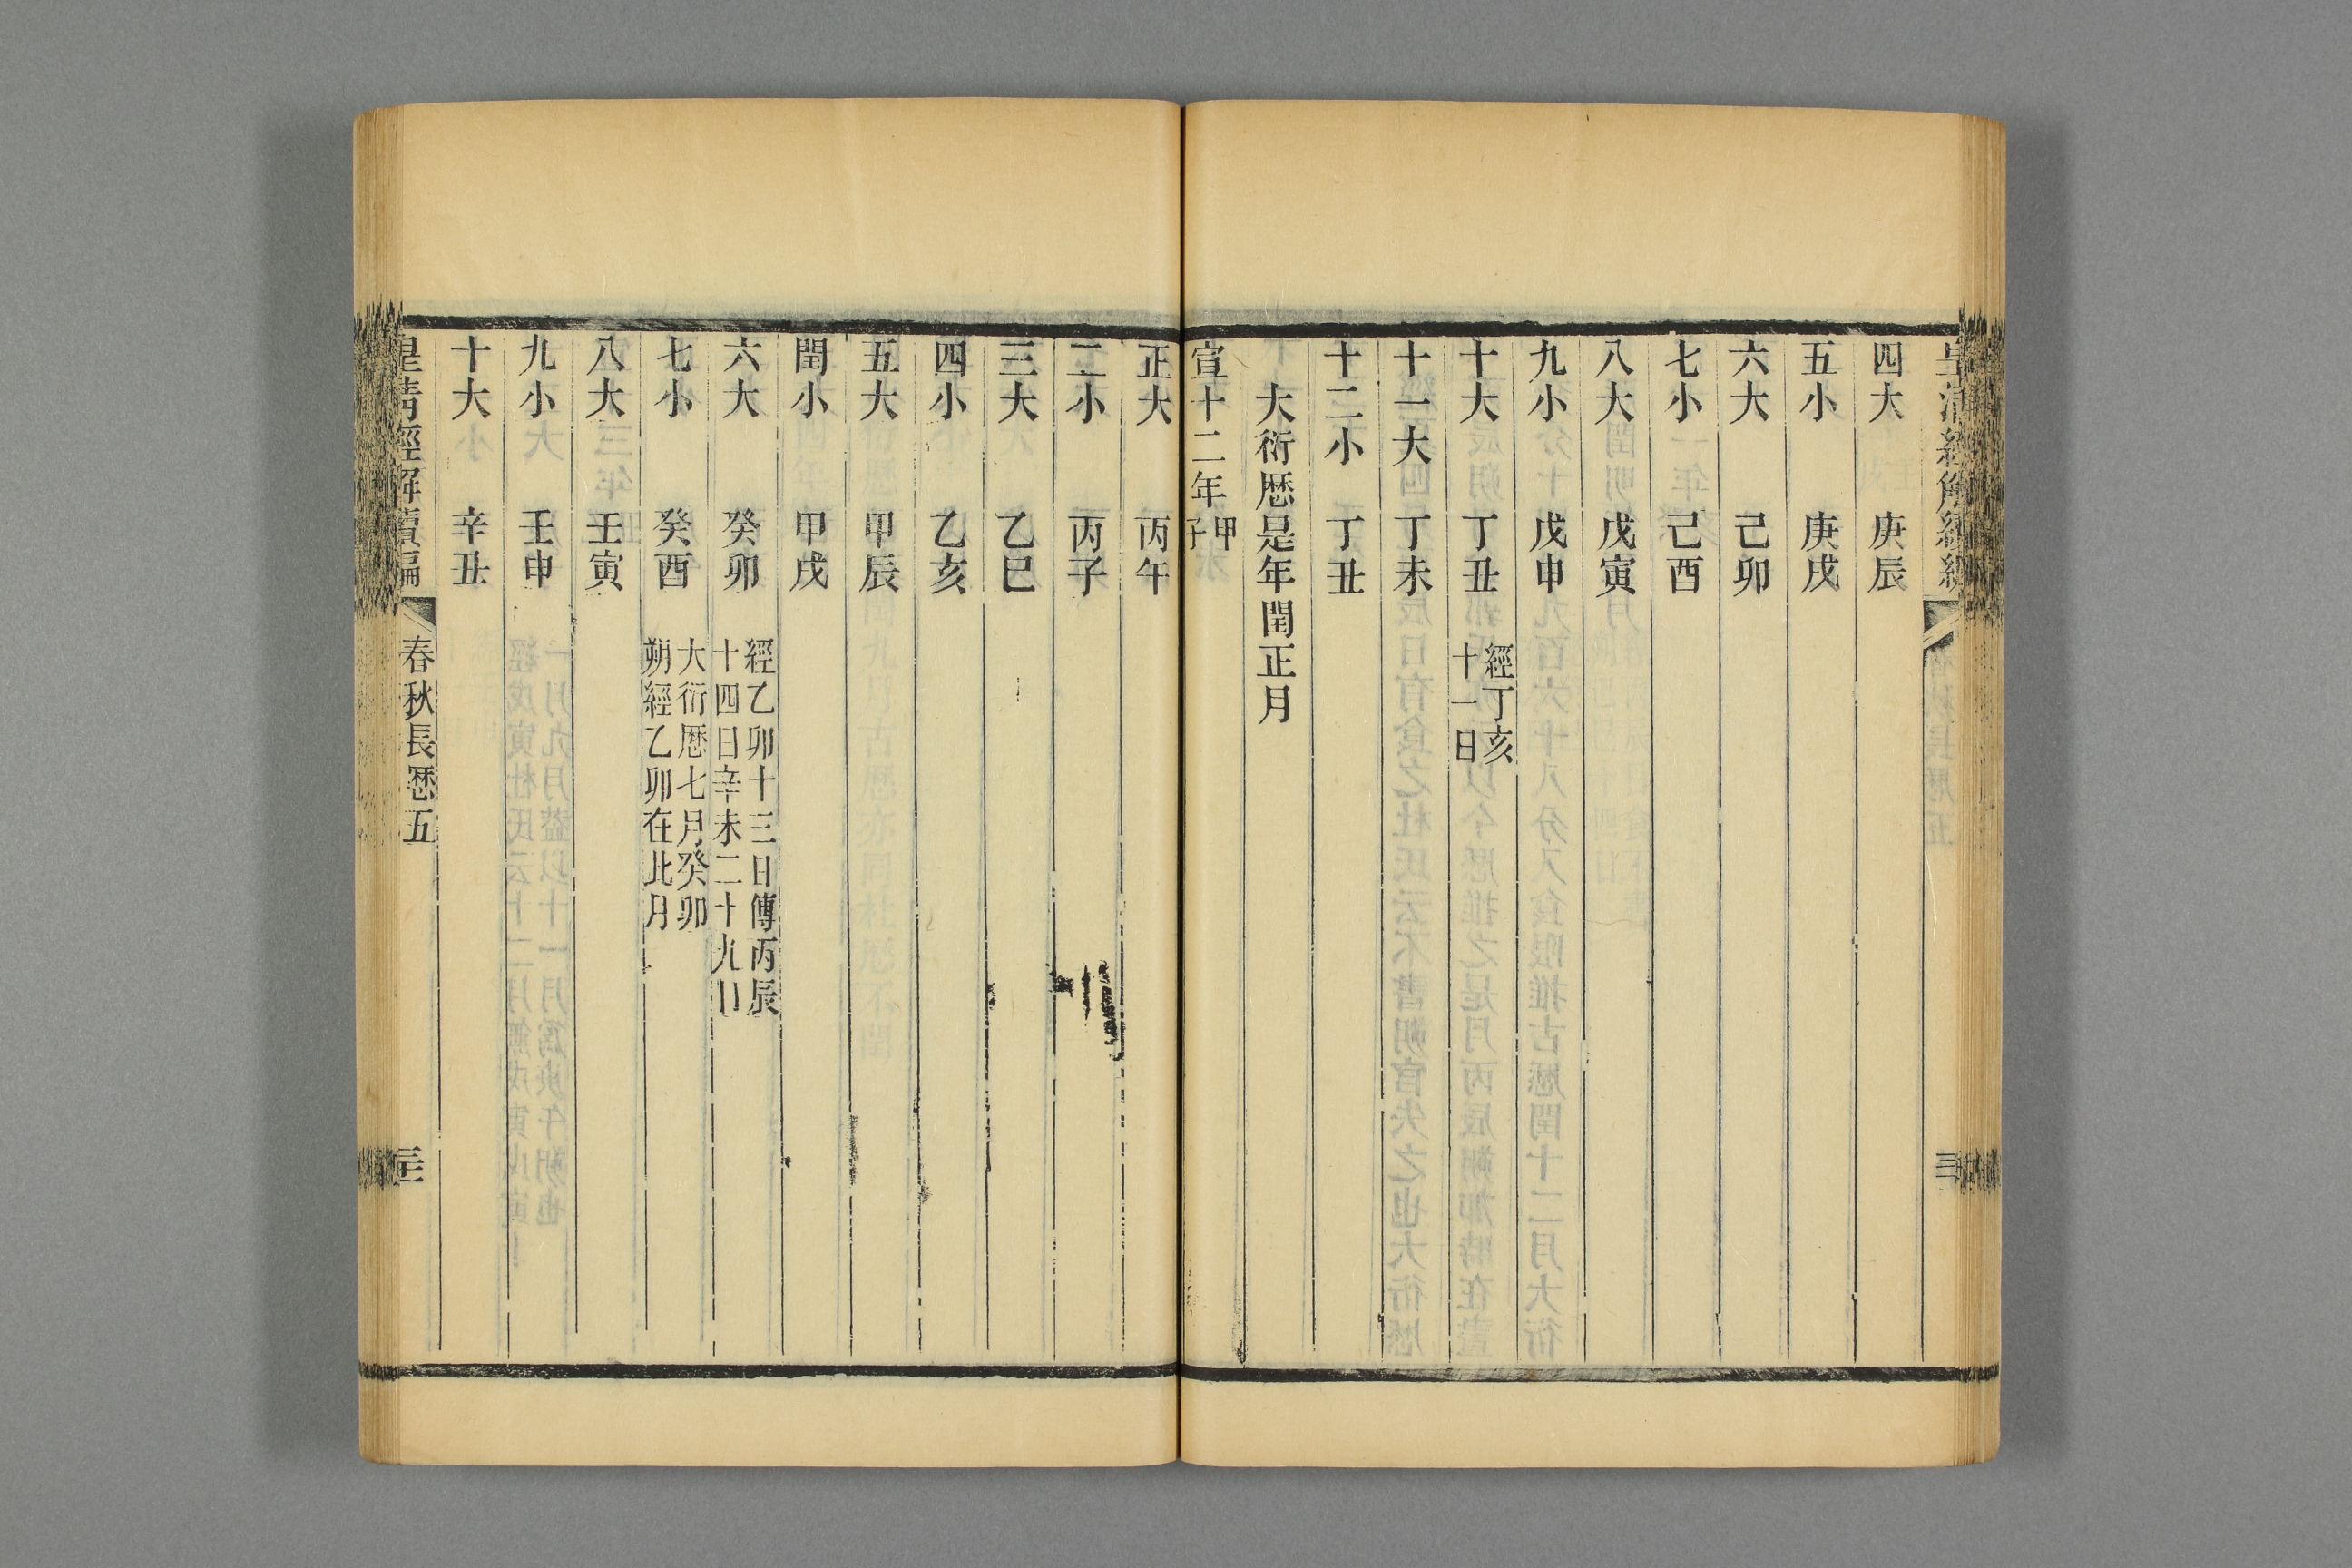 四大　庚辰
五小　庚戌
六大　己卯
七小　己酉
八大　戊寅
九小　戊申
十大　丁丑　經丁亥
十一日
十一大　丁未
十二小　丁丑
大衍厯是年閏正月
宣十二年甲
子
正大　丙午
二小　丙子
三大　乙巳
四小　乙亥
五大　甲辰
閏小　甲戌
六大　癸卯　經乙卯十三日傳丙辰
十四日辛未二十九日
七小　癸酉　大衍厯七月癸卯
朔經乙卯在此月
八大　壬寅
九小　壬申
十大　辛丑
皇清經解續編　春秋長厯五